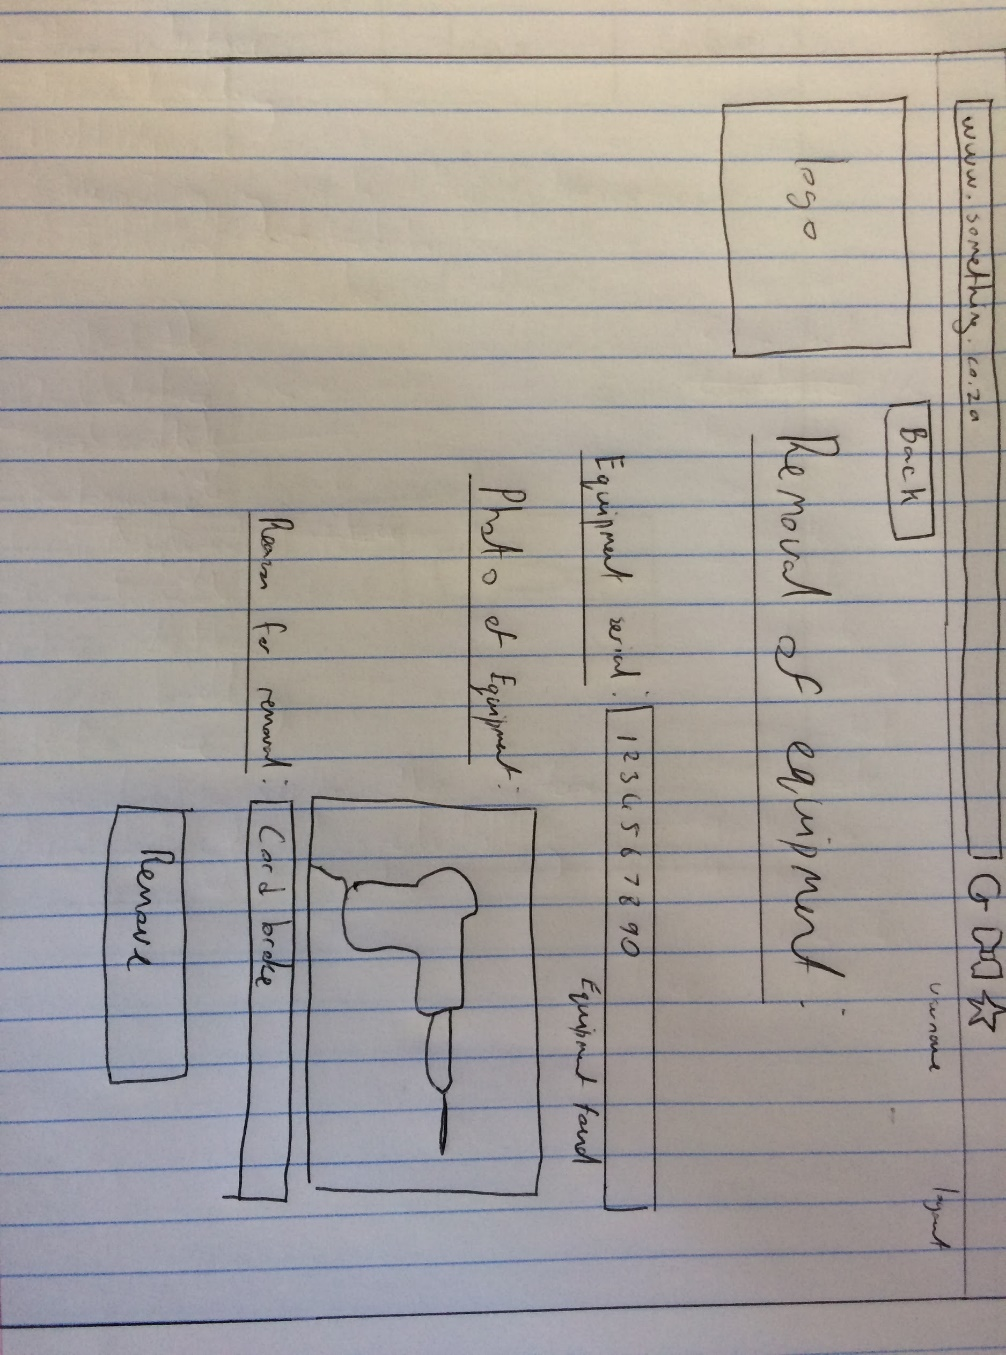 www.something.co.za
username
logout
Back
logo
Removal of equipment.
Equipment serial: 1234567890
Equipment found
Photo of Equipment:
Reason for removal: Cord broke
Remove